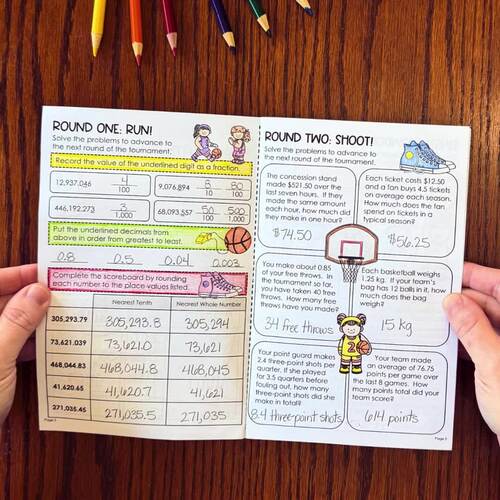 ROUND ONE: RUN!
Solve the problems to advance to
the next round of the tournament.
Record the value of the underlined digit as a fraction.
12,937.046 4/100
9,076.894 8/10 80/100
446,192.273 3/1,000
68,093.557 50/100 500/1,000
Put the underlined decimals from
above in order from greatest to least.
0.8 0.5 0.04 0.003
Complete the scoreboard by rounding
each number to the place values listed.
Nearest Tenth Nearest Whole Number
305,293.79 305,293.8 305,294
73,621.039 73,621.0 73,621
468,044.83 468,044.8 468,045
41,620.65 41,620.7 41,621
271,035.45 271,035.5 271,035
Page 2
ROUND TWO: SHOOT!
Solve the problems to advance to
the next round of the tournament.
The concession stand
made $521.50 over the
last seven hours. If they
made the same amount
each hour, how much did
they make in one hour?
$74.50
Each ticket costs $12.50
and a fan buys 4.5 tickets
on average each season.
How much does the fan
spend on tickets in a
typical season?
$56.25
You make about 0.85
of your free throws. In
the tournament so far,
you have taken 40 free
throws. How many free
throws have you made?
34 free throws
Each basketball weighs
1.25 kg. If your team's
bag has 12 balls in it, how
much does the bag
weigh?
15 kg
Your point guard makes
2.4 three-point shots per
quarter. If she played
for 3.5 quarters before
fouling out, how many
three-point shots did she
make in total?
8.4 three-point shots
Your team made
an average of 76.75
points per game over
the last 8 games. How
many points total did your
team score?
614 points
2
Page 3